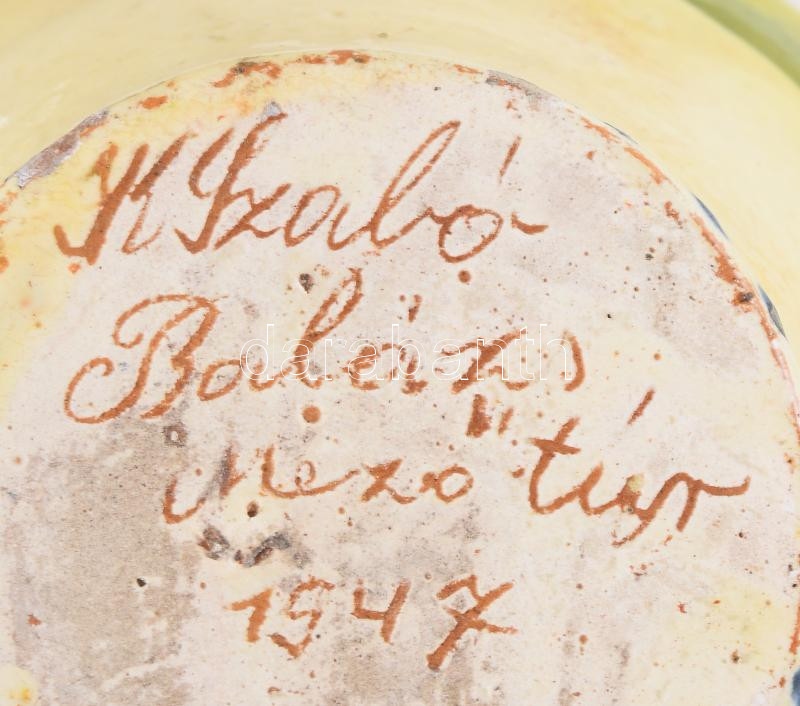 K Szabó
Balázs
darabanth
Mezőtúr
1947